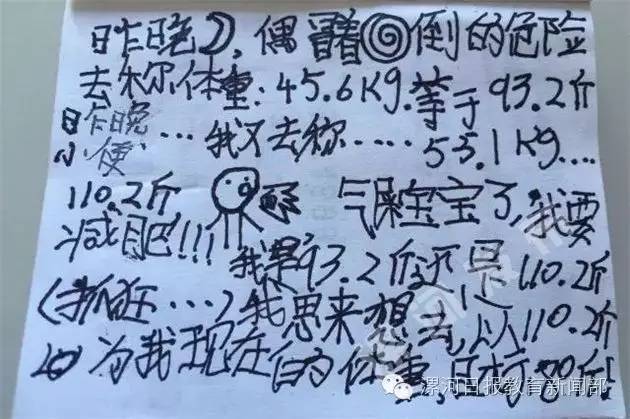 昨晚,偶冒着倒的危险
去称体重:45.6Kg.等于93.2斤
昨晚
小便…我又去称……55.1Kg….
110.2斤 宝宝了,我要
减肥!!! 我是93.2斤还是110.2斤
(抓狂…)我思来想去,以110.2斤
为我现在的体重,目标80斤!
漯河日报教育新闻部